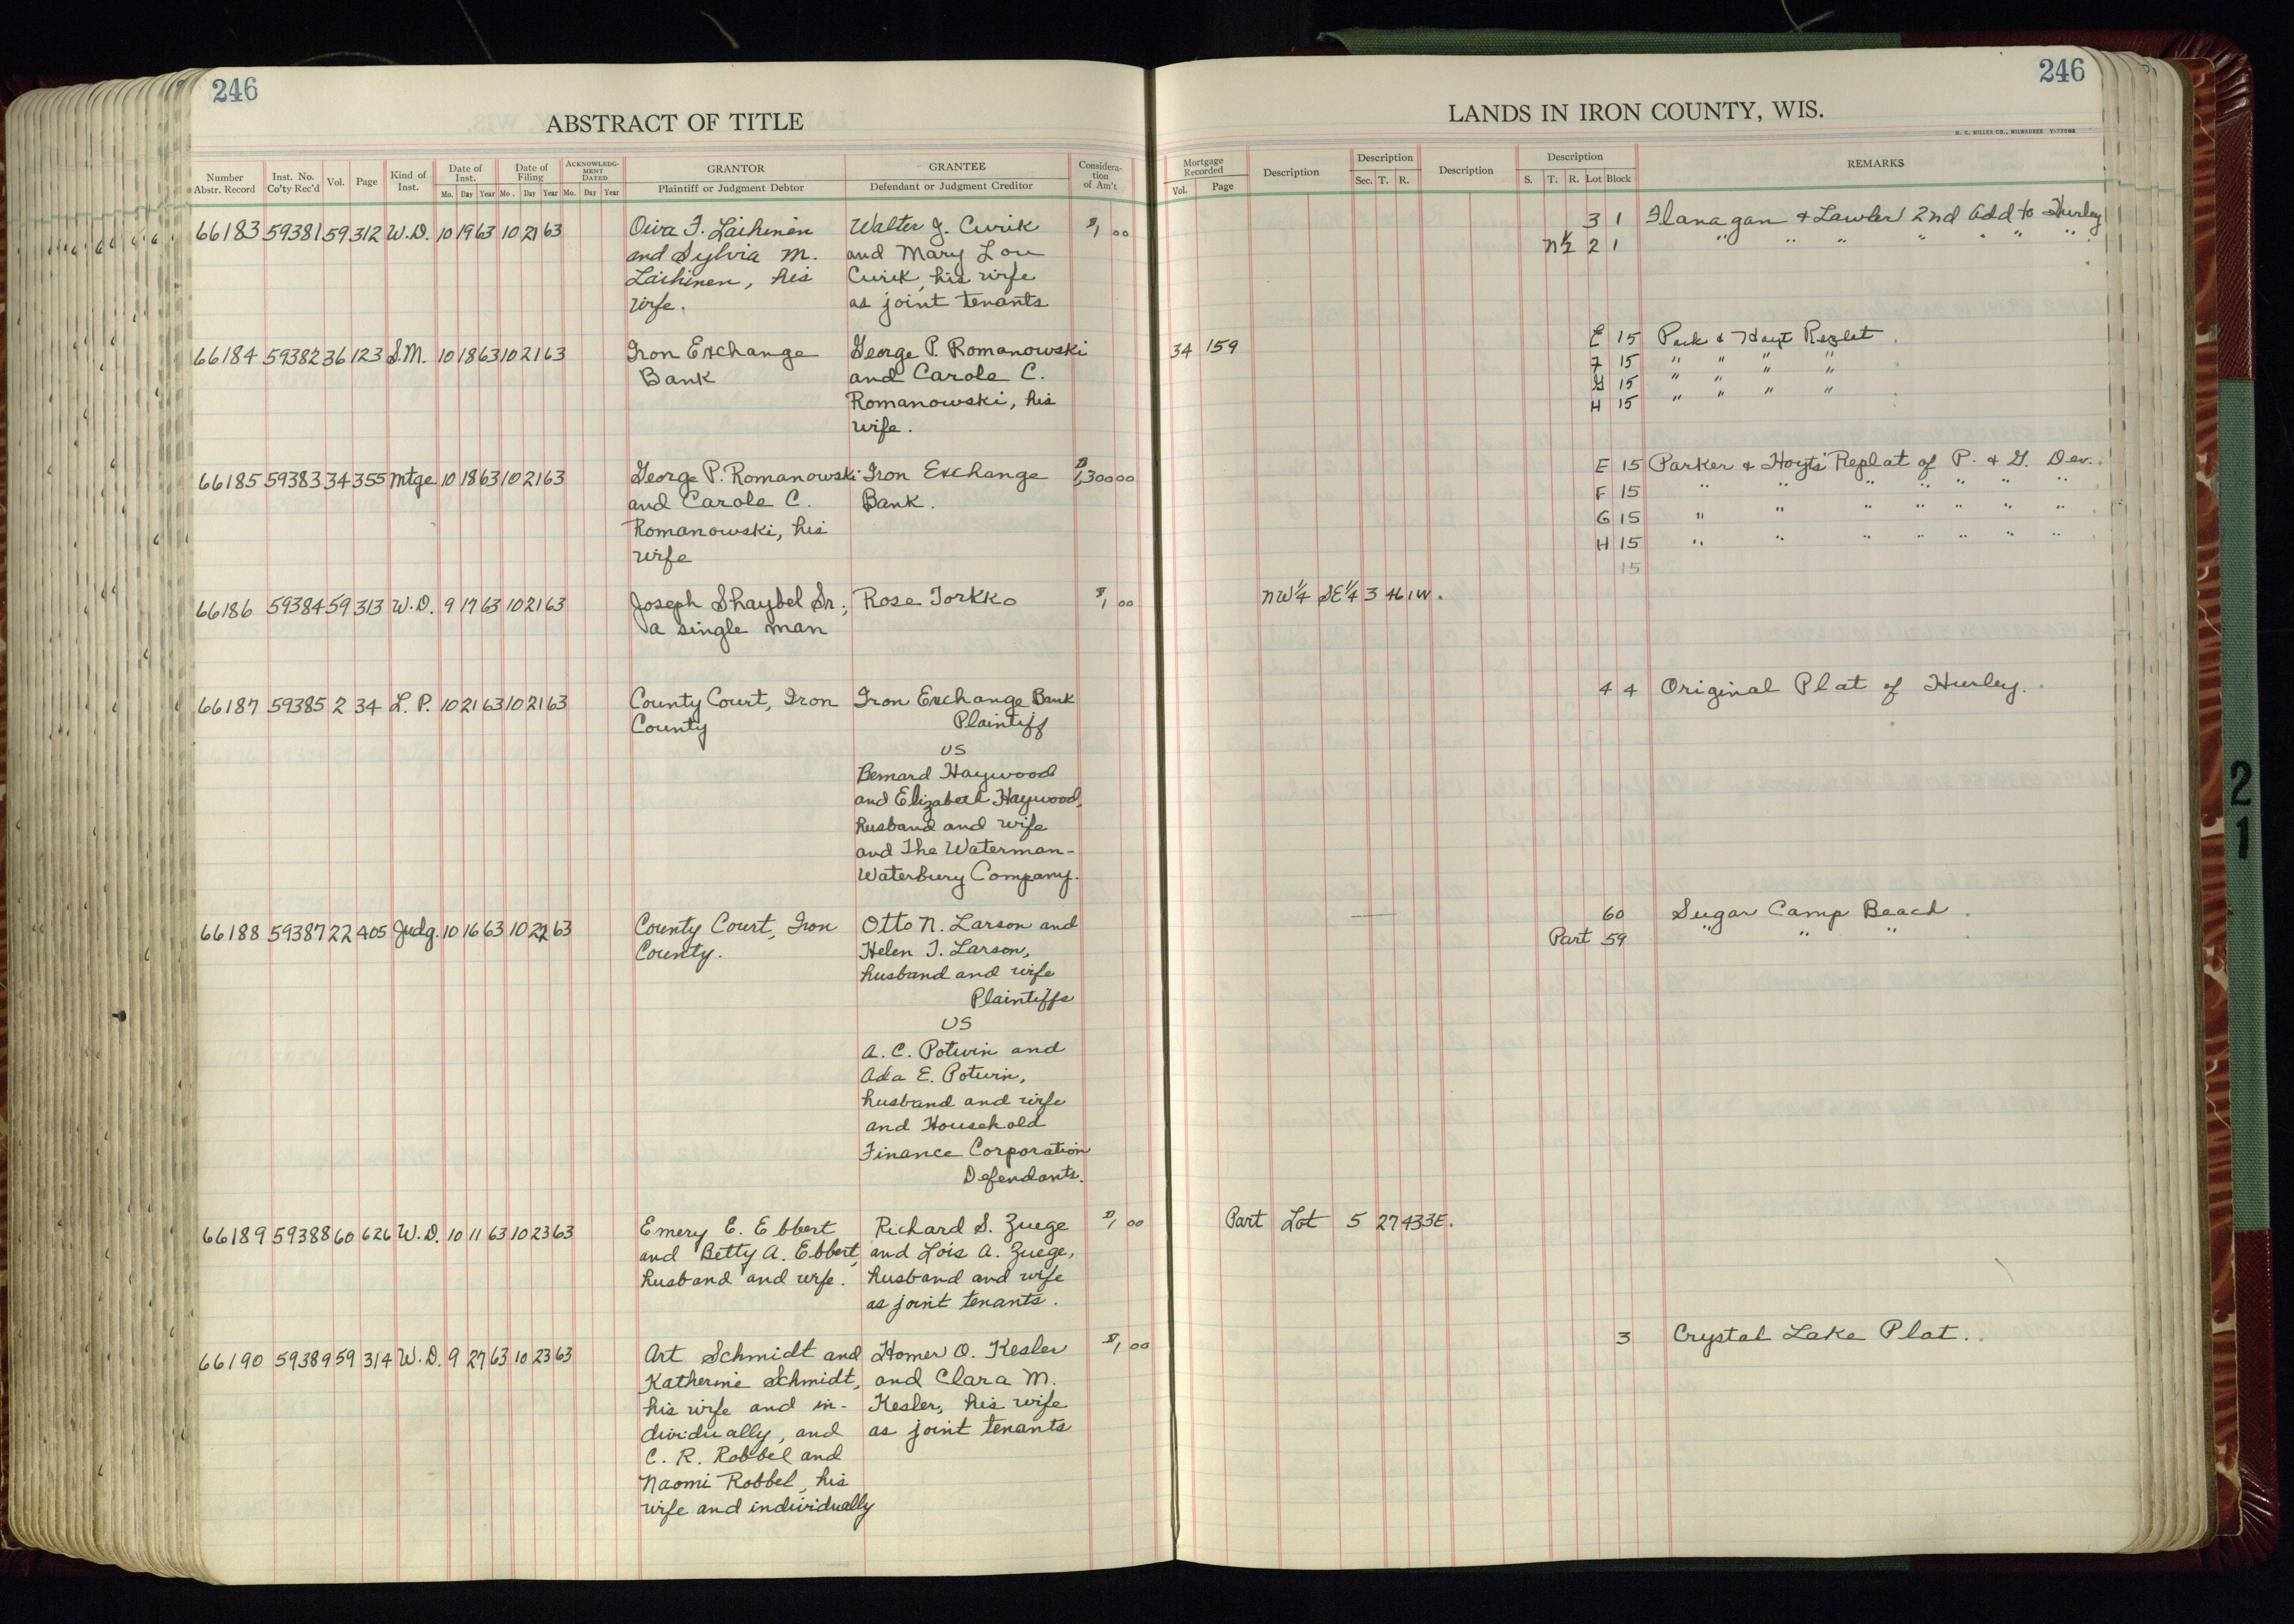 246
ABSTRACT OF TITLE
Number Abstr. Record | Inst. No. Co'ty Rec'd | Vol. | Page | Kind of Inst. | Date of Inst. Mo. Day Year | Date of Filing Mo. Day Year | ACKNOWLEDGMENT DATED Mo. Day Year | GRANTOR Plaintiff or Judgment Debtor | GRANTEE Defendant or Judgment Creditor | Consideration of Am't
66183 59381 59 312 W.D. 10 19 63 10 21 63 Oiva F. Laihinen Walter J. Curik $1 00
and Sylvia M. and Mary Lou
Laihinen, his Curik, his wife
wife. as joint tenants
66184 59382 36 123 S.M. 10 18 63 10 21 63 Iron Exchange George P. Romanowski
Bank and Carole C.
Romanowski, his
wife.
66185 59383 34 355 Mtge 10 18 63 10 21 63 George P. Romanowski Iron Exchange $1,300 00
and Carole C. Bank.
Romanowski, his
wife
66186 59384 59 313 W.D. 9 17 63 10 21 63 Joseph Shaybel Sr., Rose Torkko $1 00
a single man
66187 59385 2 34 L.P. 10 21 63 10 21 63 County Court, Iron Iron Exchange Bank
County Plaintiff
vs
Bernard Haywood
and Elizabeth Haywood,
husband and wife
and The Waterman-
Waterbury Company.
66188 59387 22 405 Judg. 10 16 63 10 22 63 County Court, Iron Otto N. Larson and
County. Helen T. Larson,
husband and wife
Plaintiffs
vs
A. C. Potwin and
Ada E. Potwin,
husband and wife
and Household
Finance Corporation
Defendants.
66189 59388 60 626 W.D. 10 11 63 10 23 63 Emery E. Ebbert Richard S. Zuege $1 00
and Betty A. Ebbert, and Lois A. Zuege,
husband and wife. husband and wife
as joint tenants.
66190 59389 59 314 W.D. 9 27 63 10 23 63 Art Schmidt and Homer O. Kesler $1 00
Katherine Schmidt, and Clara M.
his wife and in- Kesler, his wife
dividually, and as joint tenants
C. R. Robbel and
Naomi Robbel, his
wife and individually
246
LANDS IN IRON COUNTY, WIS.
H. C. MILLER CO., MILWAUKEE Y-77098
Mortgage Recorded Vol. Page | Description | Description Sec. T. R. | Description | Description S. T. R. Lot Block | REMARKS
3 1 Flanagan & Lawler 2nd Add to Hurley
N½ 2 1 " " " " " " "
34 159 E 15 Park & Hoyt Replat
F 15 " " " "
G 15 " " " "
H 15 " " " "
E 15 Parker & Hoyts' Replat of P. & G. Dev.
F 15 " " " " " " "
G 15 " " " " " " "
H 15 " " " " " " "
15
NW¼ SE¼ 3 46 1W.
4 4 Original Plat of Hurley.
60 Sugar Camp Beach
Part 59 " " "
Part Lot 5 27 43 3E.
3 Crystal Lake Plat.
21